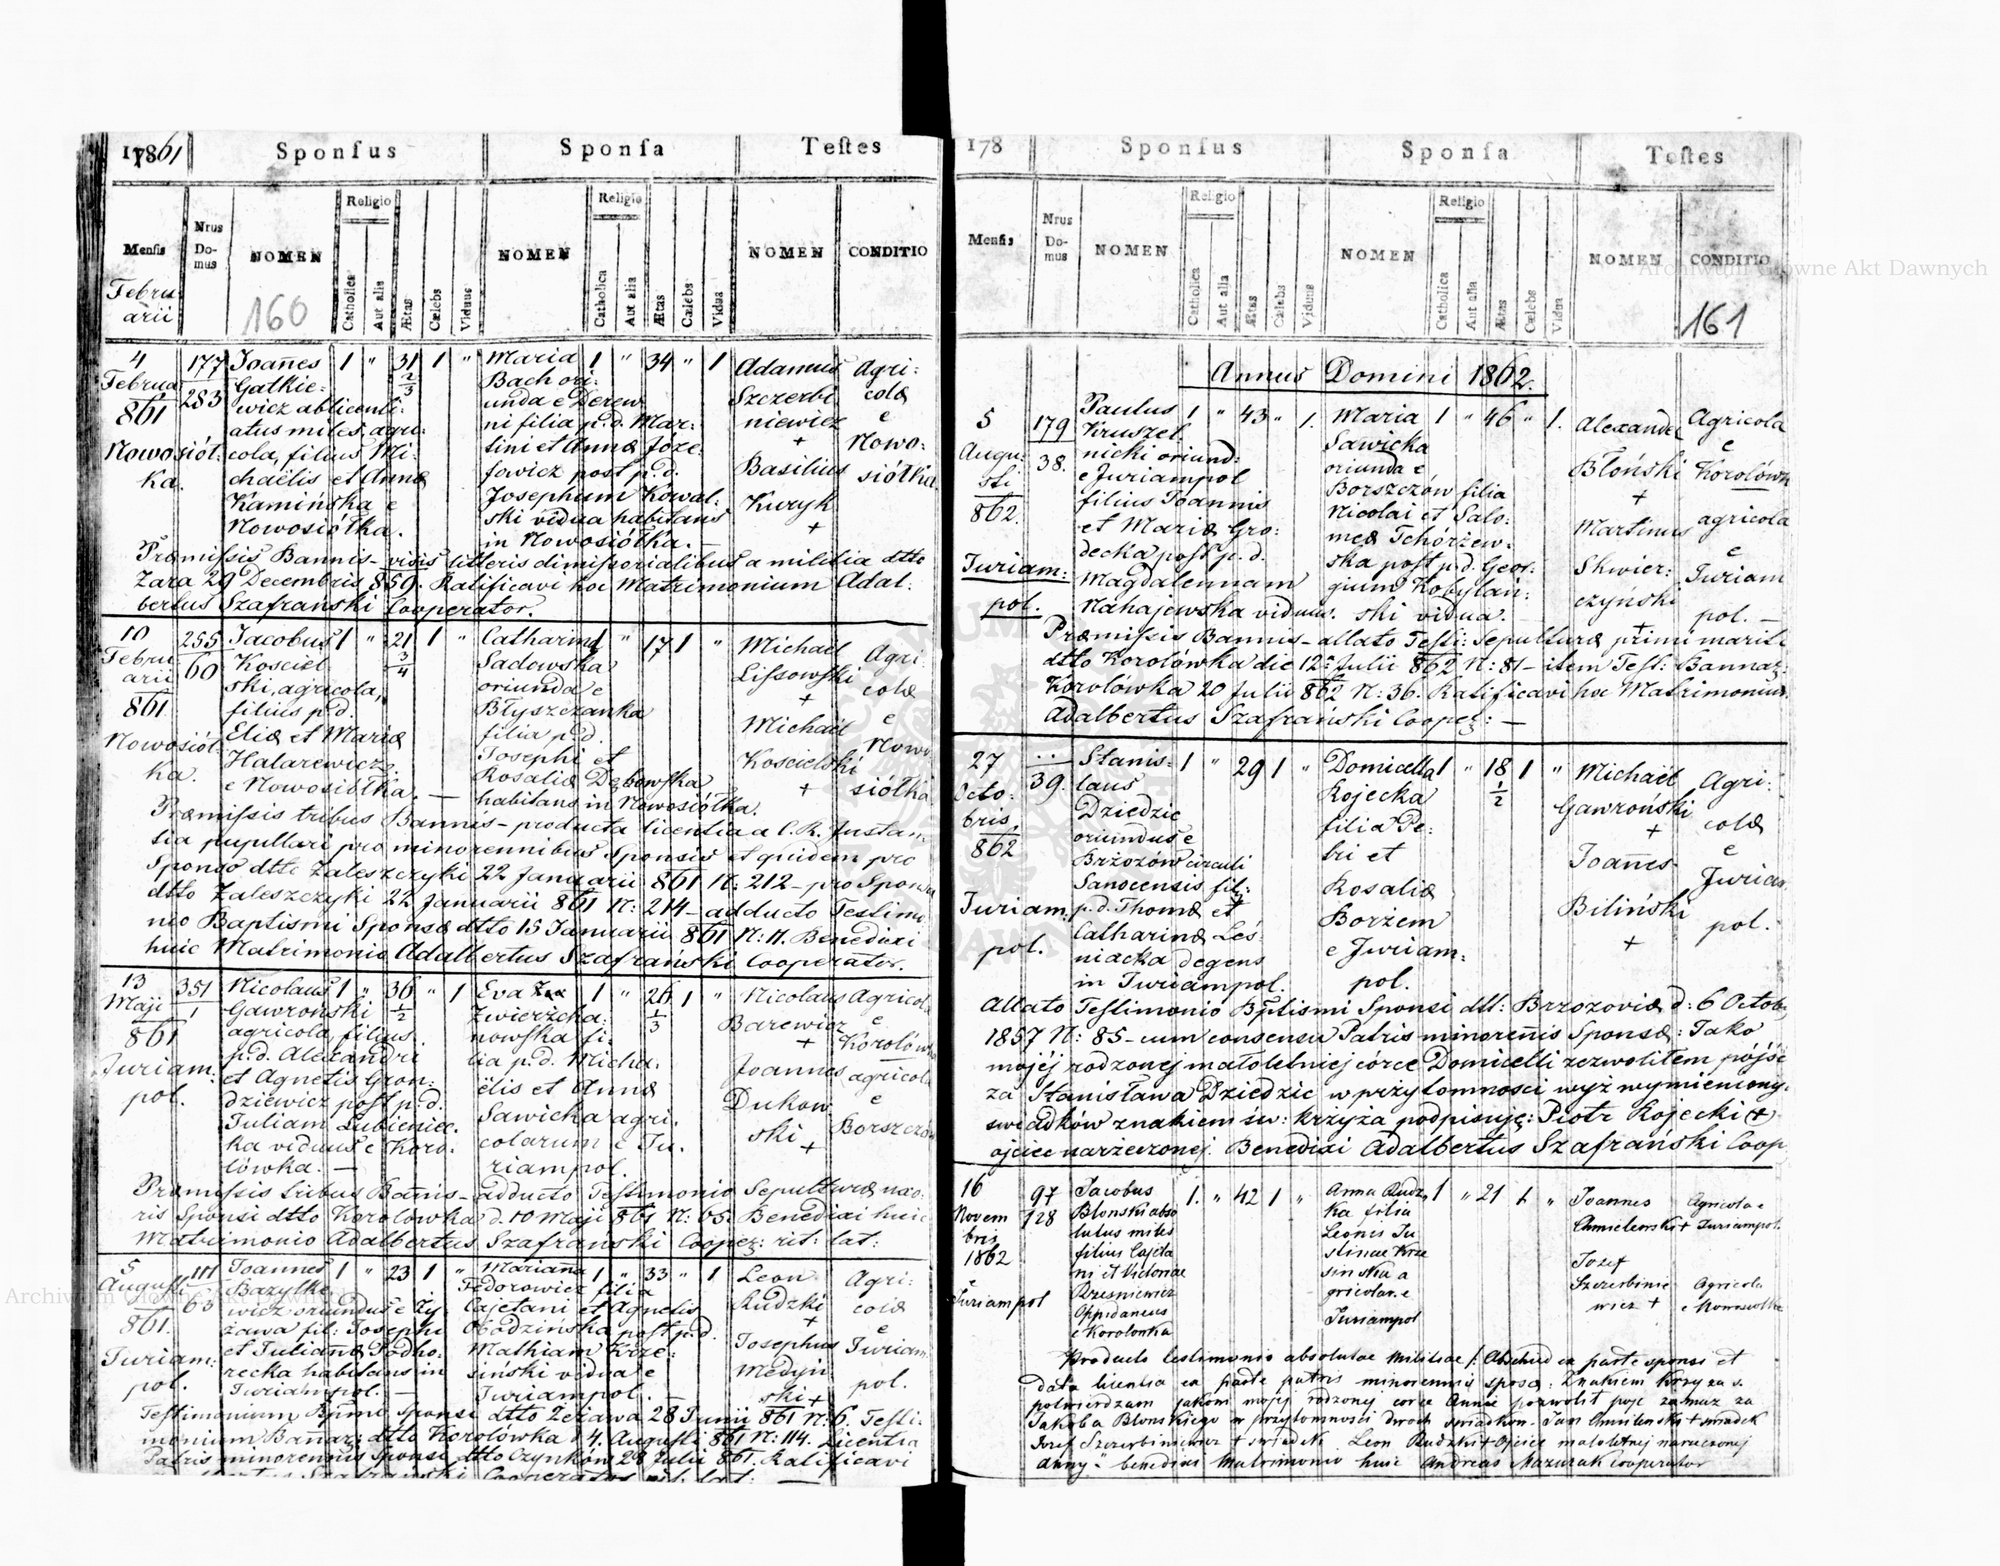 17861 Sponſus Sponſa Teſtes
Menſis Nrus Do-mus NOMEN Religio Catholica Aut alia Ætas Cælebs Viduus NOMEN Religio Catholica Aut alia Ætas Cælebs Vidua NOMEN CONDITIO
Febru
arii
160
4 Februa 861 Nowosiół: ka.
177
283
Joañes 1 " 31 2/3 1 "
Gatkie:
wicz ablicenti:
atus miles, agri:
cola, filius Mi:
chaëlis et Annæ
Kamińska e
Nowosiółka.
Maria 1 " 34 " 1
Bach ori:
unda e Derew
ni filia p.d. Mar:
tini et Annæ Joze:
fowicz post p.d.
Josephum Kowal:
ski vidua habitans
in Nowosiółka. —
Adamus
Szczerbi
niewicz
+
Basilius
Kuryk
+
Agri:
colæ
e
Nowo:
siółka
Præmiſsis Bannis – visis litteris dimiſsorialibus a militia dtto
Zara 29 Decembris 859. Ratificavi hoc Matrimonium Adal:
bertus Szafrański Cooperator.
10 Febru arii 861 Nowosiół: ka.
255
60
Jacobus 1 " 21 3/4 1 "
Kościel
ski, agricola,
filius p.d.
Eliæ et Mariæ
Halarewicz
e Nowosiółka. —
Catharina 1 " 17 1 "
Sadowska
oriunda e
Błyszczanka
filia p.d.
Josephi et
Rosaliæ Dębowſka
habitans in Nowosiółka.
Michaël
Liſsowski
+
Michaël
Kościelski
+
Agri:
colæ
e
Nowo
siółka
Præmiſsis tribus Bannis – producta licentia a C. R. Instan
tia pupillari pro minorennibus Sponsis et quidem pro
Sponso dtto Zaleszczyki 22 Januarii 861 N: 212 – pro Sponsa
dtto Zaleszczyki 22 Januarii 861 N: 214 – adducto Testimo
nio Baptismi Sponsæ dtto 15 Januarii 861 N: 11. Benedixi
huic Matrimonio Adalbertus Szafrański Cooperator.
13 Maji 861 Juriam: pol.
351
1
Nicolaus 1 " 36 1/2 " 1
Gawroński
agricola, filius
p.d. Alexandri
et Agnetis Gron:
dziewicz post p.d.
Juliam Lubieniec:
ka viduus e Koro:
lówka. —
Eva 1 " 26 1/3 1 "
Zwierzcha:
nowska fi:
lia p.d. Micha:
ëlis et Annæ
Sawicka agri:
colarum e Ju:
riampol.
Nicolaus
Barewicz
+
Joannes
Dukow
ski +
Agricola
e
Korolówka
agricola
e
Borszczów
Præmiſsis tribus Bañis – adducto Testimonio Sepulturæ uxo:
ris Sponsi dtto Korolówka d. 10 Maji 861 N: 65. Benedixi huic
Matrimonio Adalbertus Szafrański Cooper: rit: lat:
5 Augusti 861. Juriam: pol.
111
63
Joannes 1 " 23 1 "
Bazylke
wicz oriundus e Ży
żawa fil: Josephi
et Julianæ Podho:
recka habitans in
Juriampol. —
Marianna 1 " 33 " 1
Fedorowicz filia
Cajetani et Agnetis
Obodzińska post p.d.
Mathiam Krze:
siński vidua e
Juriampol. —
Leon
Rudzki
+
Josephus
Medyń
ski +
Agri:
colæ
e
Juriam
pol.
Testimonium Bptmi Sponsi dtto Żeżawa 28 Junii 861 N: 6. Testi:
monium Bañar: dtto Korolówka d 4. Augusti 861 N: 114. Licentia
Patris minorennis Sponsi dtto Ozynków 28 Julii 861. Ratificavi
178 Sponſus Sponſa Teſtes
Menſis Nrus Do-mus NOMEN Religio Catholica Aut alia Ætas Cælebs Viduus NOMEN Religio Catholica Aut alia Ætas Cælebs Vidua NOMEN CONDITIO
161
Annus Domini 1862.
5 Augu: sti 862. Juriam: pol.
179
38.
Paulus 1 " 43 " 1.
Kruszel:
nicki oriund:
e Juriampol
filius Joannis
et Mariæ Gro:
decka post p.d.
Magdalennam
Nahajewska viduus.
Maria 1 " 46 " 1.
Sawicka
oriunda e
Borszczów filia
Nicolai et Salo:
meæ Tchórzew:
ska post p.d. Geor:
gium Kobylań:
ski vidua.
Alexander
Błoński
+
Martinus
Skwier:
czyński
+
Agricola
e
Korolówka
agricola
e
Juriam
pol. —
Præmiſsis Bannis – allato Testi: Sepulturæ primi mariti
dtto Korolówka die 12: Julii 862 N: 81 – item Test: Bannar:
Korolówka 20 Julii 862 N: 36. Ratificavi hoc Matrimonium
Adalbertus Szafrański Cooper: —
27 Octo: bris 862 Juriam: pol.
...
39.
Stanis: 1 " 29 1 "
laus
Dziedzic
oriundus e
Brzozów circuli
Sanocensis fil:
p.d. Thomæ et
Catharinæ Leś:
niacka degens
in Juriampol.
Domicella 1 " 18 1/2 1 "
Rojecka
filia Pe:
tri et
Rosaliæ
Borżem
e Juriam:
pol.
Michaël
Gawroński
+
Joañes
Biliński
+
Agri:
colæ
e
Juriam
pol.
Allato Testimonio Bptismi Sponsi dtt: Brzozoviæ d: 6 Octob:
1857 N: 85 – cum consensu Patris minorenis Sponsæ: Jako
mojéj rodzonej małoletniej córce Domicelli zezwoliłem pójść
za Stanisława Dziedzic w przytomności wyż wymieniony:
świadków znakiem św: krzyża podpisuję: Piotr Rojecki (+)
ojciec narzeczonej. Benedixi Adalbertus Szafrański Coop
16 Novem bris 1862 e Juriampol
97
128
Jacobus 1. " 42 1 "
Blonski abso
lutus miles
filius Cajeta
ni et Victoriae
Rzesniewicz
Oppidaneus
e Korolowka
Anna Rudz 1 " 21 1 "
ka filia
Leonis Ju
stinae Krze
sinska a
gricolar. e
Juriampol
Joannes
Chmielewski +
Jozef
Szczerbinie
wicz +
Agricola e
Juriampol.
Agricola
e Nowosiolka
Producto testimonio absolutae Militiae /: Abschied ex parte sponsi et
data licentia ex parte patris minorennis sposæ: Znakiem krzyza s.
potwierdzam jakom mojej rodzonej corce Annie pozwolil pojc zamaz za
Jakoba Blonskiego w przytomnosci dwoch swiadkow. Jan Chmilewski + swiadek
Jozef Szczerbiniewicz + swiadek Leon Rudzki + Ojciec maloletnej narzeczonej
Anny." benedixi Matrimonio huic Andreas Mazurak cooperator
Archiwum Główne Akt Dawnych
Archiwum Główne Akt Dawnych